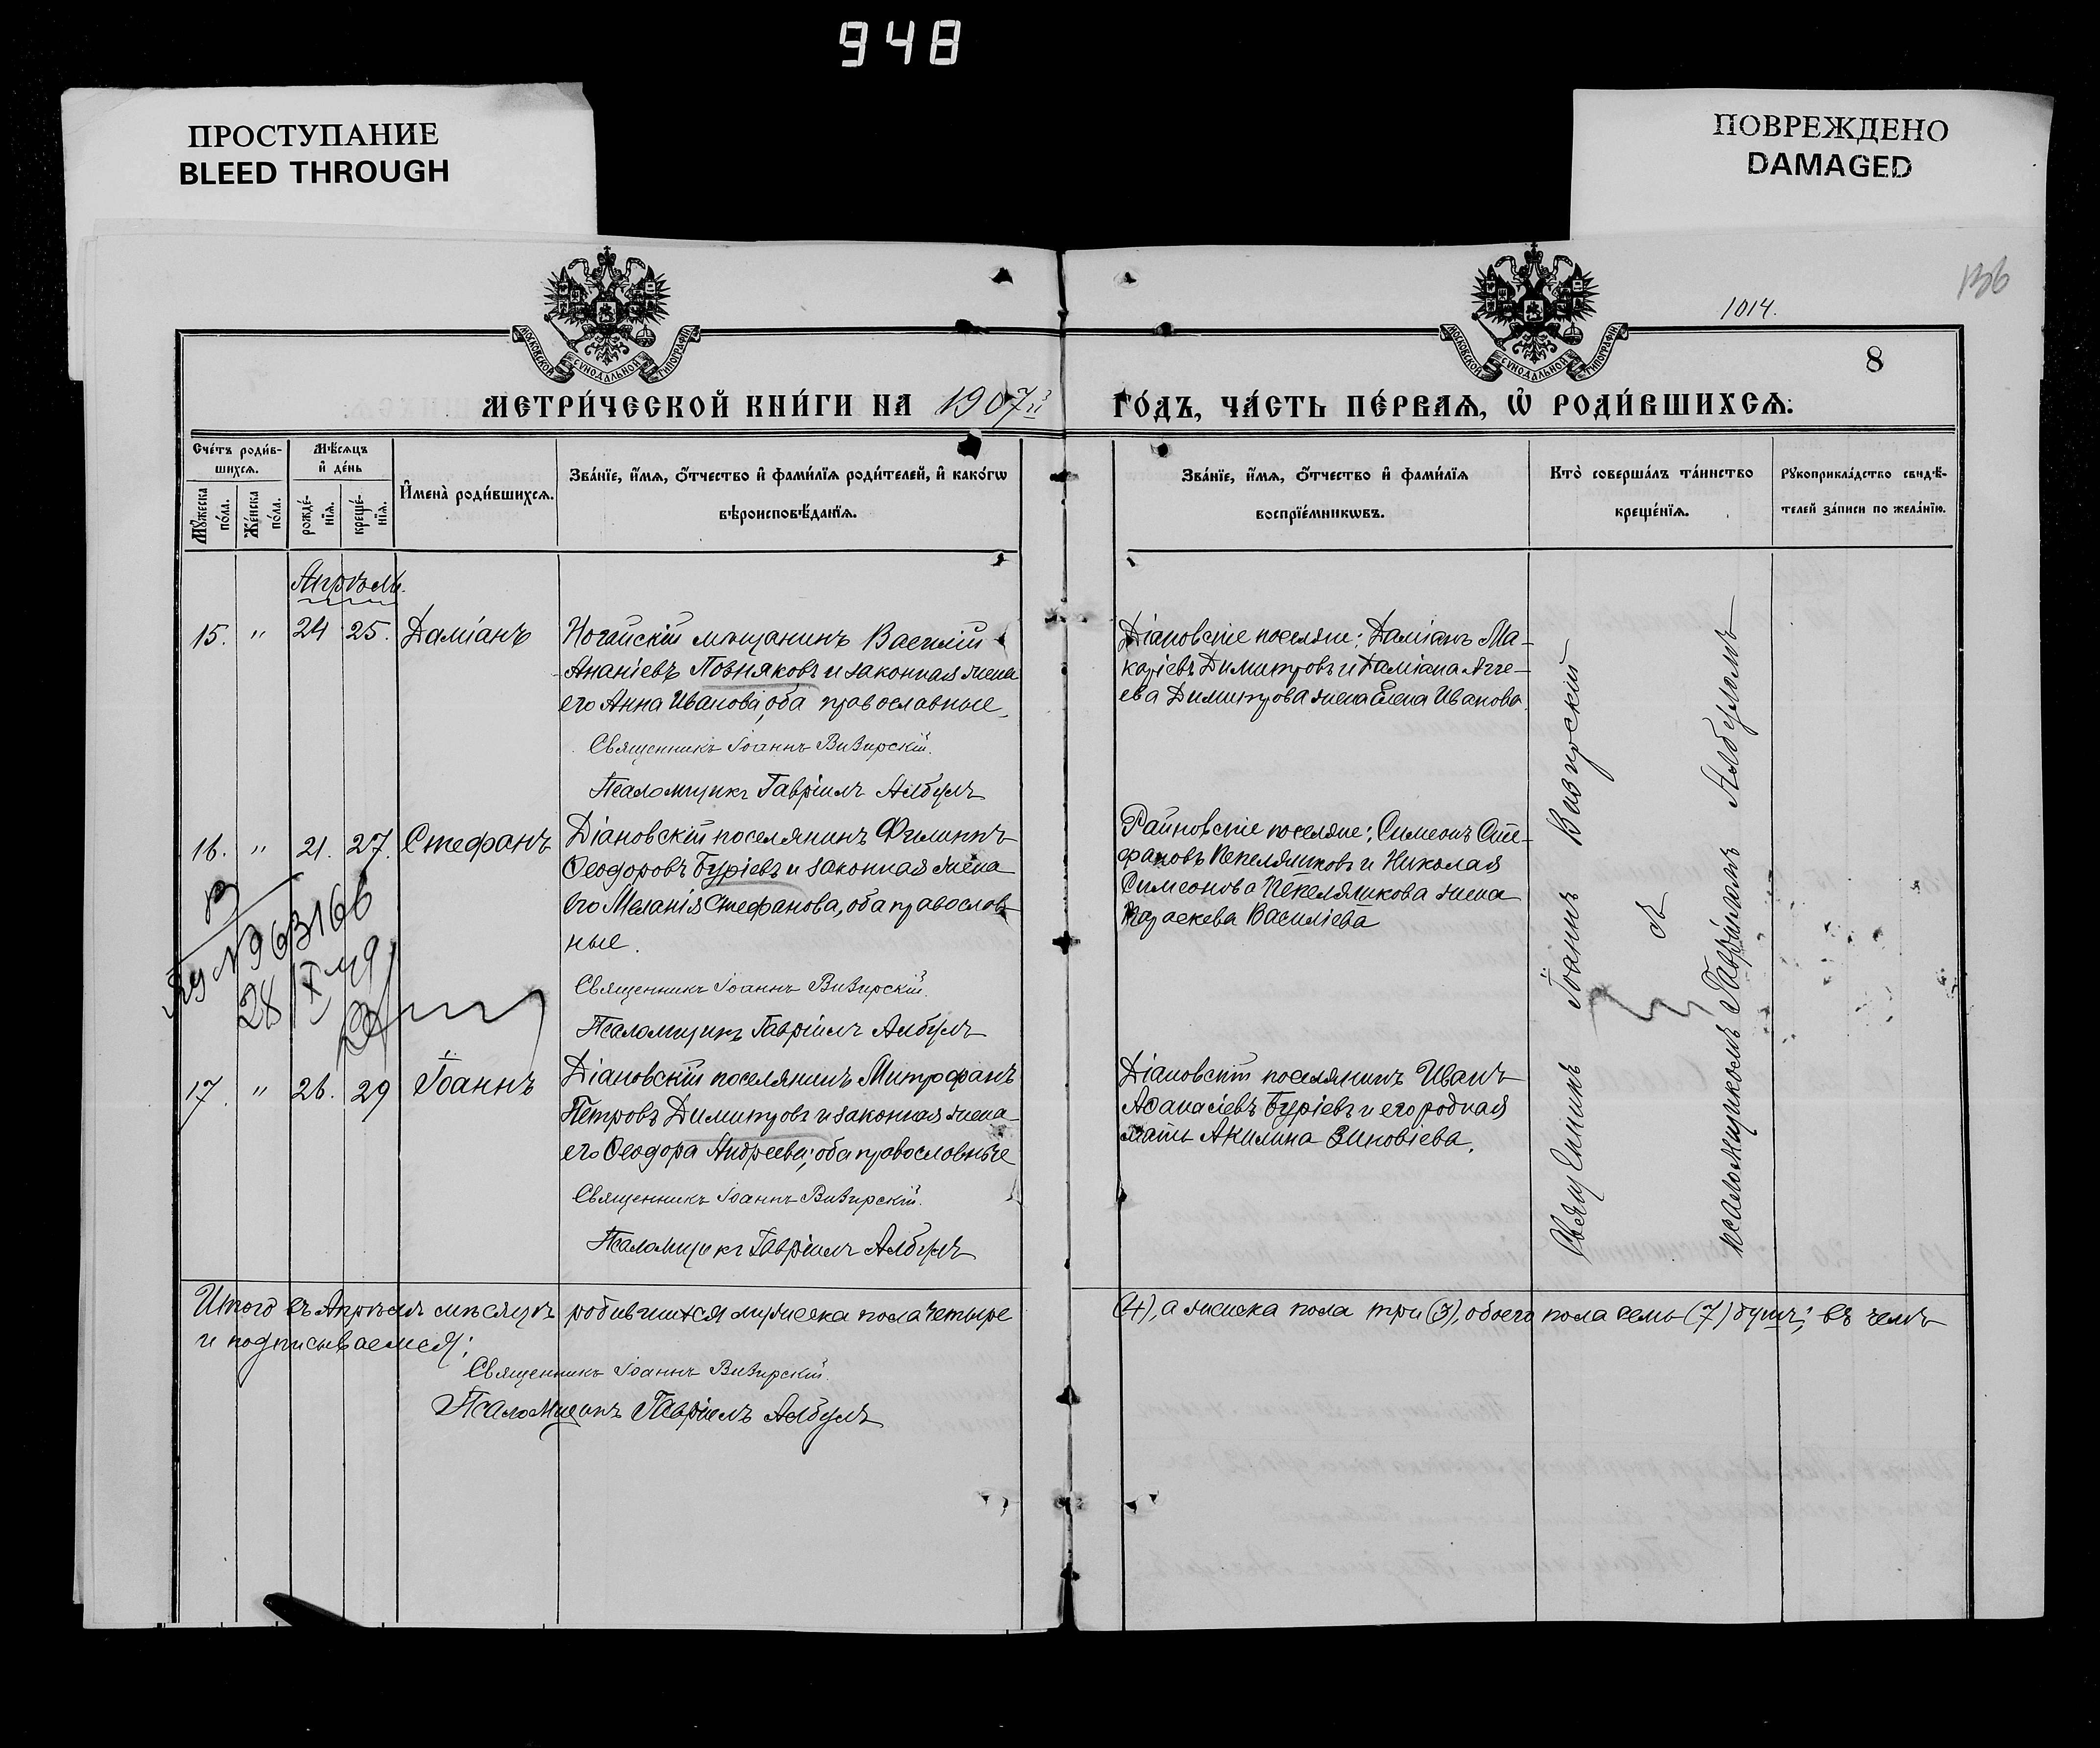 948
ПРОСТУПАНИЕ
BLEED THROUGH
ПОВРЕЖДЕНО
DAMAGED
136
1014.
8
МОСКОВСКОЙ СѴНОДАЛЬНОЙ ТИПОГРАФІИ
МОСКОВСКОЙ СѴНОДАЛЬНОЙ ТИПОГРАФІИ
МЕТРИ́ЧЕСКОЙ КНИ́ГИ НА 1907й
ГО́ДЪ, ЧА́СТЬ ПЕ́РВАѦ, Ѡ҆ РОДИ́ВШИХСѦ:
Сче́тъ роди́в-
шихсѧ.
Мꙋ́жеска
по́ла.
Же́нска
по́ла.
Мѣ́сѧцъ
и҆ де́нь
рожде́-
нїѧ.
креще́-
нїѧ.
И҆мена̀ роди́вшихсѧ.
Зва́нїе, и҆́мѧ, ѻ҆́тчество и҆ фами́лїѧ роди́телей, и҆ како́гѡ
вѣроисповѣ́данїѧ.
Зва́нїе, и҆́мѧ, ѻ҆́тчество и҆ фами́лїѧ
воспрїе́мникѡвъ.
Кто̀ соверша́лъ та́инство
креще́нїѧ.
Рꙋкоприкла́дство свидѣ́-
телей за́писи по жела́нїю.
Апрѣль.
15. " 24 25. Даміанъ
Ногайскій мѣщанинъ Василій
Ананіевъ Позняковъ и законная жена
его Анна Иванова, оба православные.
Священникъ Іоаннъ Визирскій.
Псаломщикъ Гавріилъ Албулъ
Діановскіе поселяне: Даміанъ Ма-
каріевъ Димитровъ и Даміана Агге-
ева Димитрова жена Елена Иванова.
16. " 21. 27. Стефанъ
Діановскій поселянинъ Филиппъ
Ѳеодоровъ Буріевъ и законная жена
его Меланія Стефанова, оба православ
ные.
Священникъ Іоаннъ Визирскій.
Псаломщикъ Гавріилъ Албулъ
Райновскіе поселяне: Симеонъ Сте-
фановъ Пепеляшковъ и Николая
Симеонова Пепеляшкова жена
Параскева Василіева
№ 963166
28/X 49
17. " 26. 29 Іоаннъ
Діановскій поселянинъ Митрофанъ
Петровъ Димитровъ и законная жена
его Ѳеодора Андреева; оба православные
Священникъ Іоаннъ Визирскій.
Псаломщикъ Гавріилъ Албулъ
Діановскій поселянинъ Иванъ
Аѳанасіевъ Буріевъ и его родная
мать Акилина Зиновіева.
Священникъ Іоаннъ Визирскій
съ
псаломщикомъ Гавріиломъ Албуломъ
Итого въ Апрѣлѣ мѣсяцѣ родившихся мужеска пола четыре
(4), а женска пола три (3), обоего пола семь (7) душъ; въ чемъ
и подписываемся:
Священникъ Іоаннъ Визирскій.
Псаломщикъ Гавріилъ Албулъ